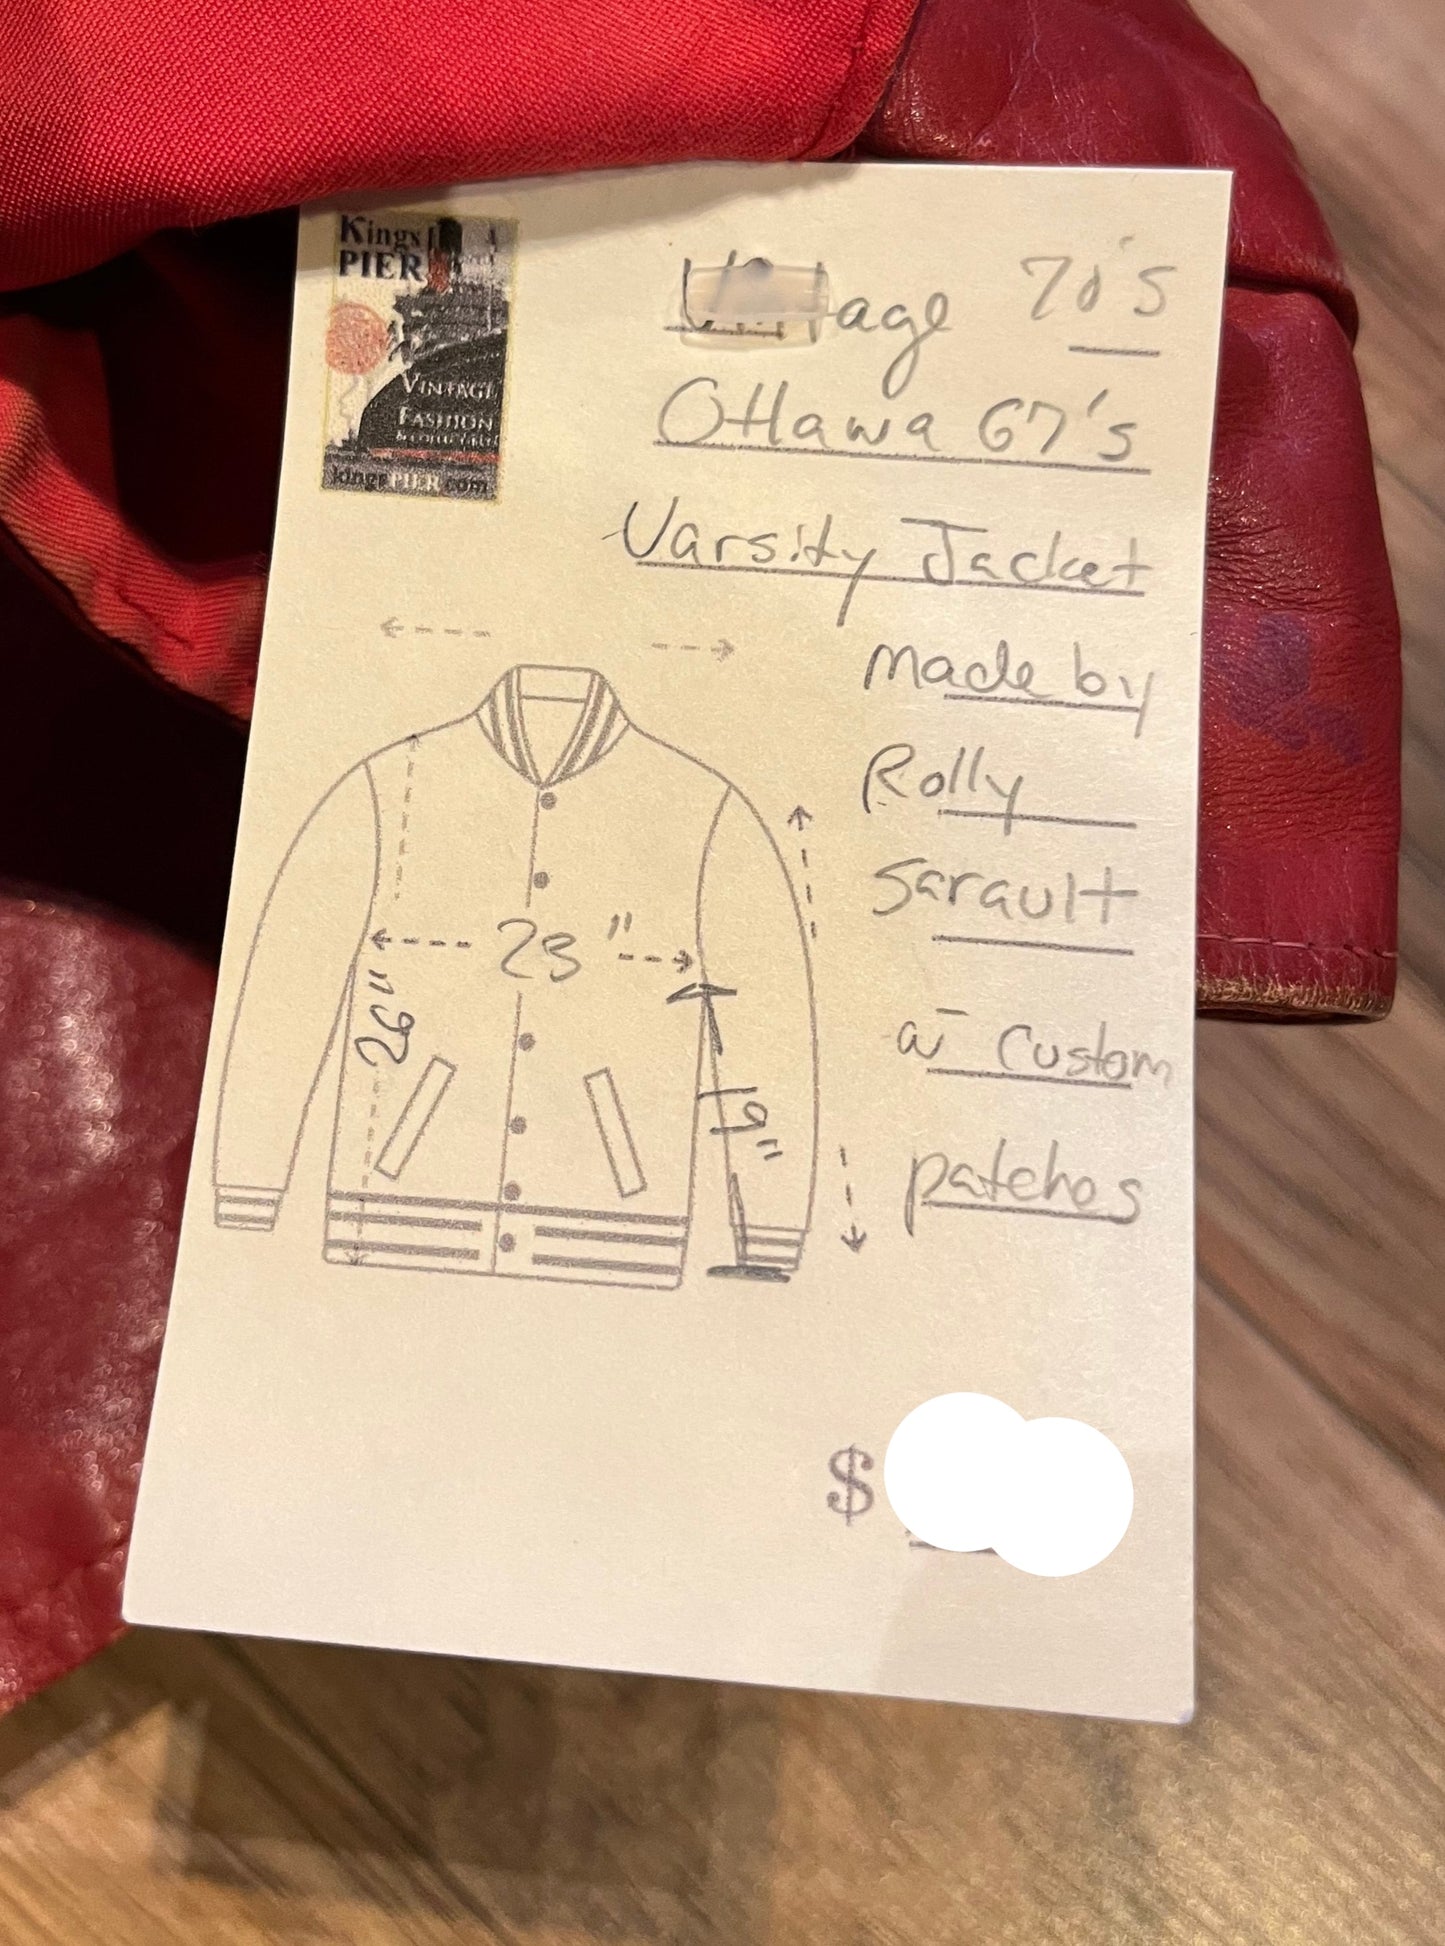 Kings
PIER
VINTAGE
FASHION
& COLLECTABLES
kingsPIER.com
Vintage 70's
Ottawa 67's
Varsity Jacket
made by
Rolly
Sarault
w̄ custom
patches
23"
26"
19"
$